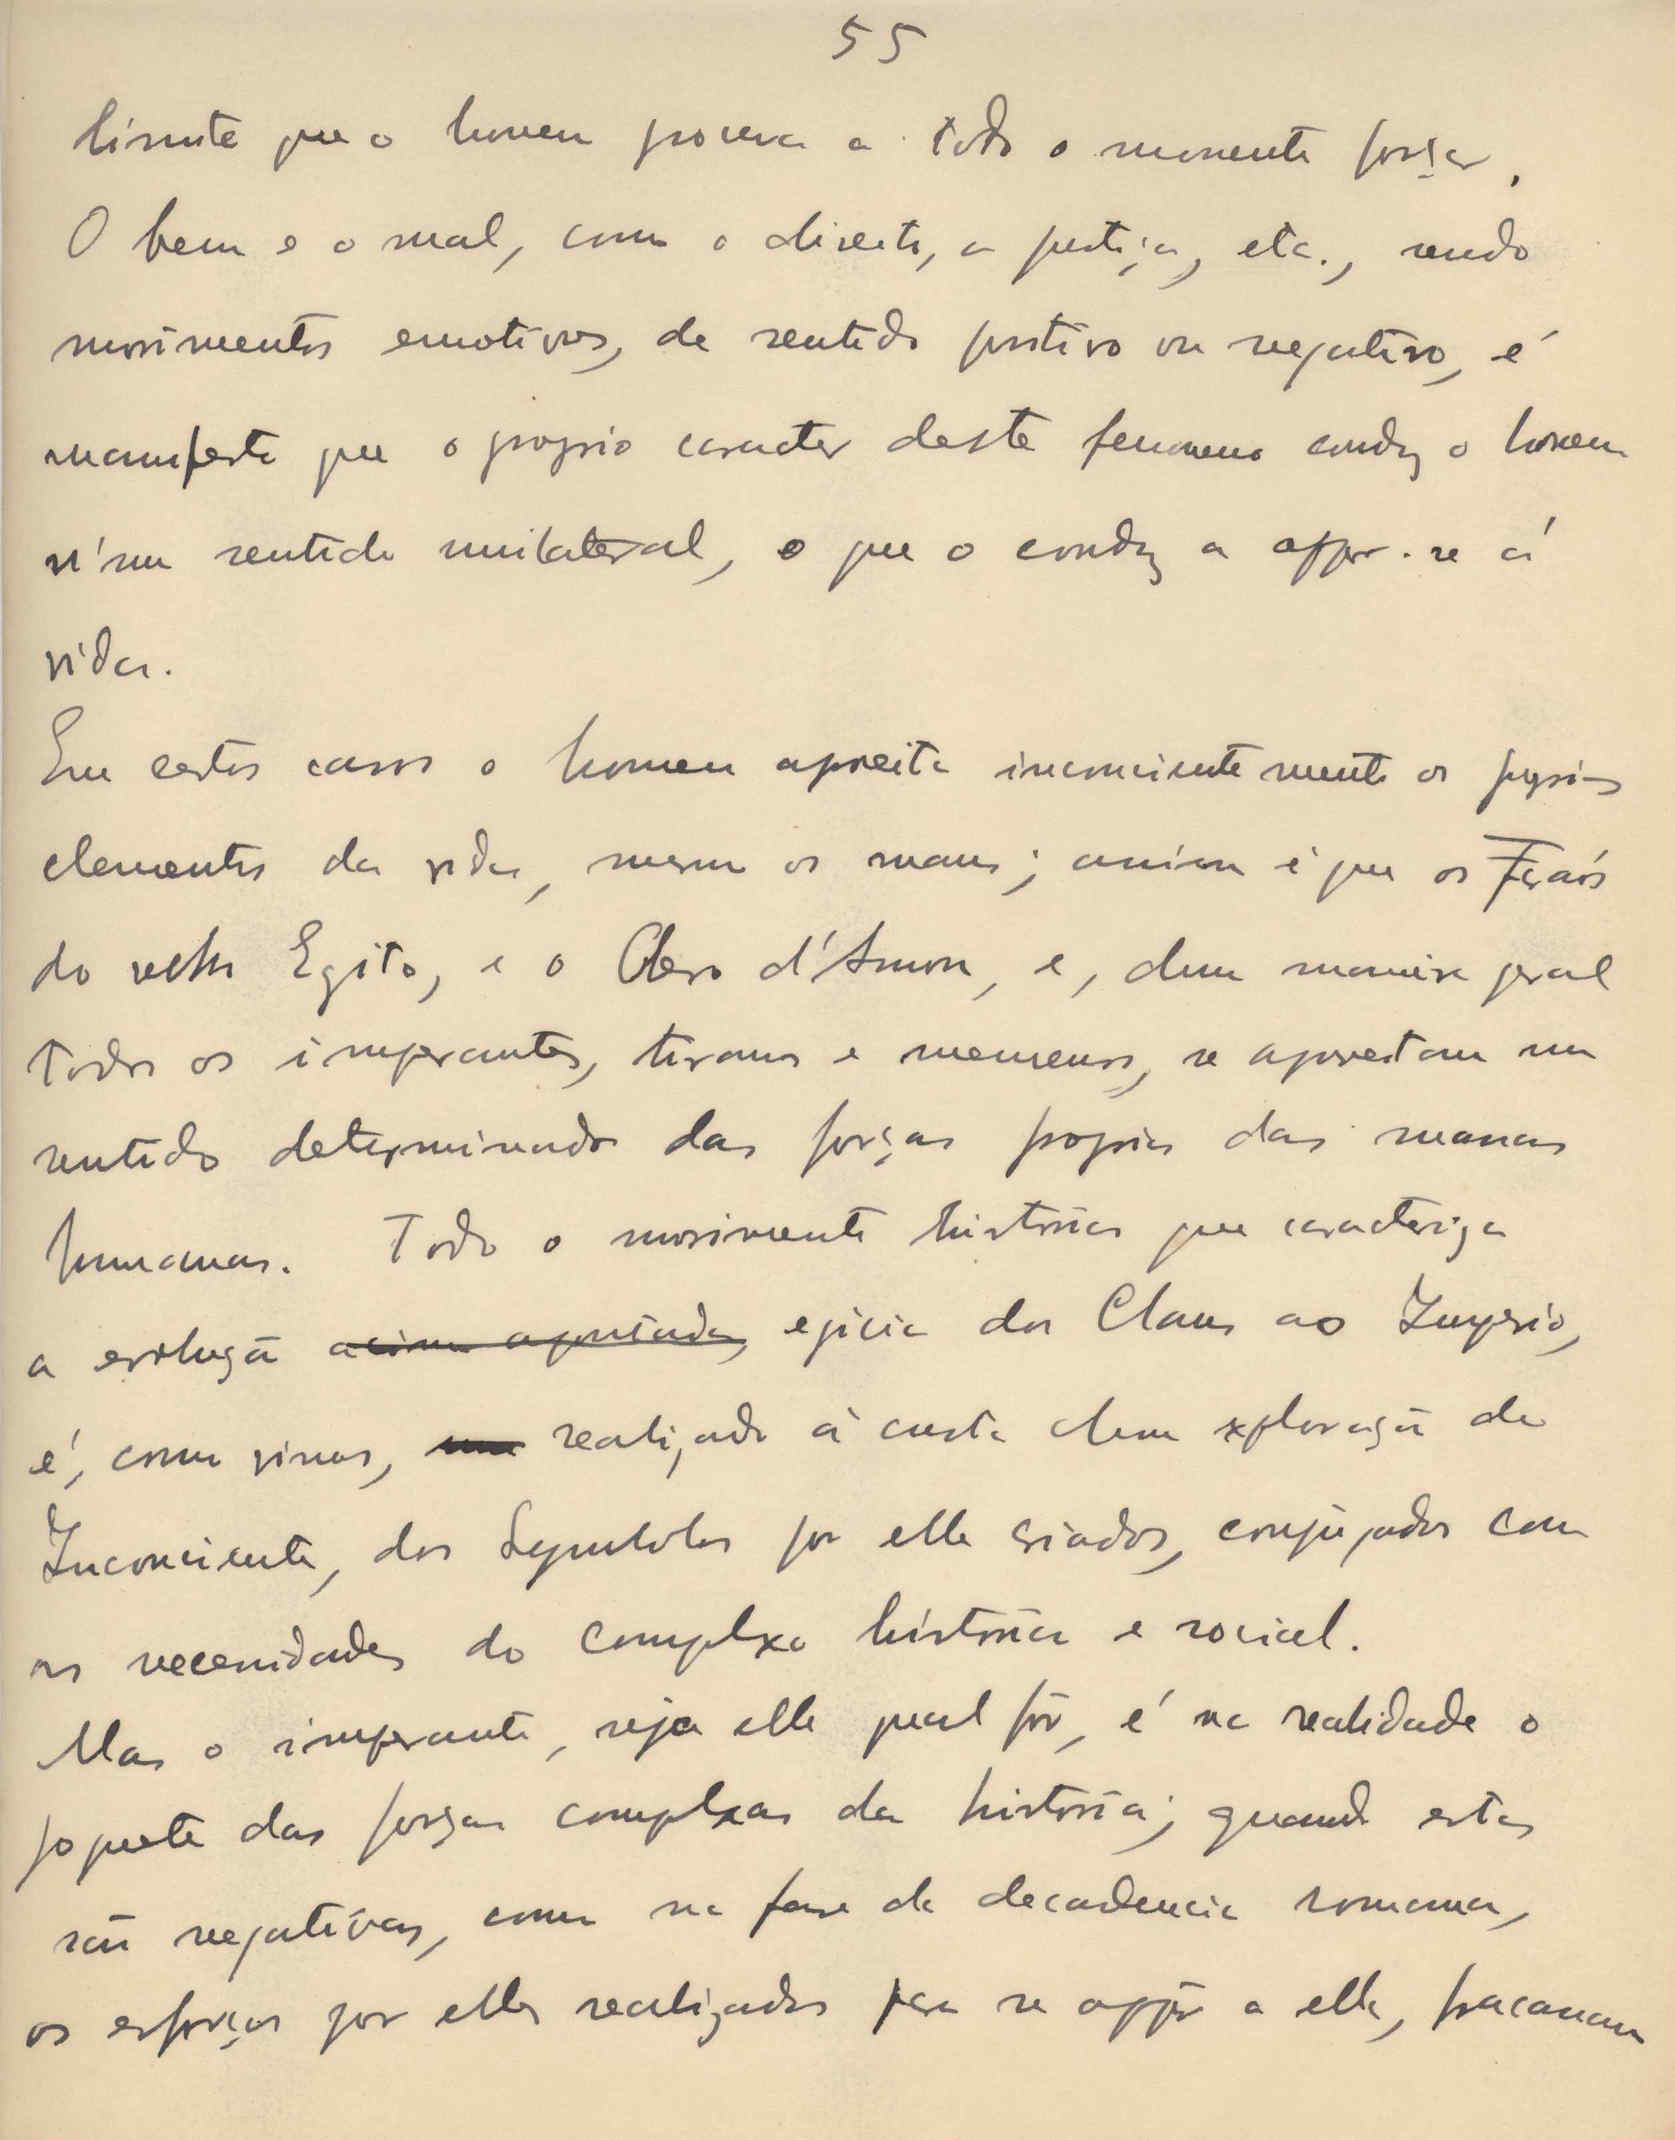 55
limite que o homem procura a todo o momento forçar.
O bem e o mal, como o direito, a justiça, etc., sendo
movimentos emotivos, de sentido positivo ou negativo, é
manifesto que o proprio caracter deste fenomeno conduz o homem
n'um sentido unilateral, o que o conduz a oppor-se á
vida.
Em certos casos o homem aproveita inconcientemente os proprios
elementos da vida, mesmo os maus; assim é que os Faraós
do velho Egito, e o Clero d'Amon, e, dum maneira geral
todos os imperantes, tiranos e mecenas, se aproveitam num
sentido determinado das forças proprias das massas
humanas. Todo o movimento histórico que caracteriza
a evolução acima apontada, egicia dos Clans ao Imperio,
é, como vimos, uma realizado á custa duma exploração do
Inconciente, dos Symbolos por elle criados, conjugados com
as necessidades do complexo histórico e social.
Mas o imperante, seja elle qual fôr, é na realidade o
joguete das forças complexas da história; quando estas
são negativas, como na fase da decadencia romana,
os esforços por elles realizados para se oppôr a ella, fracassam